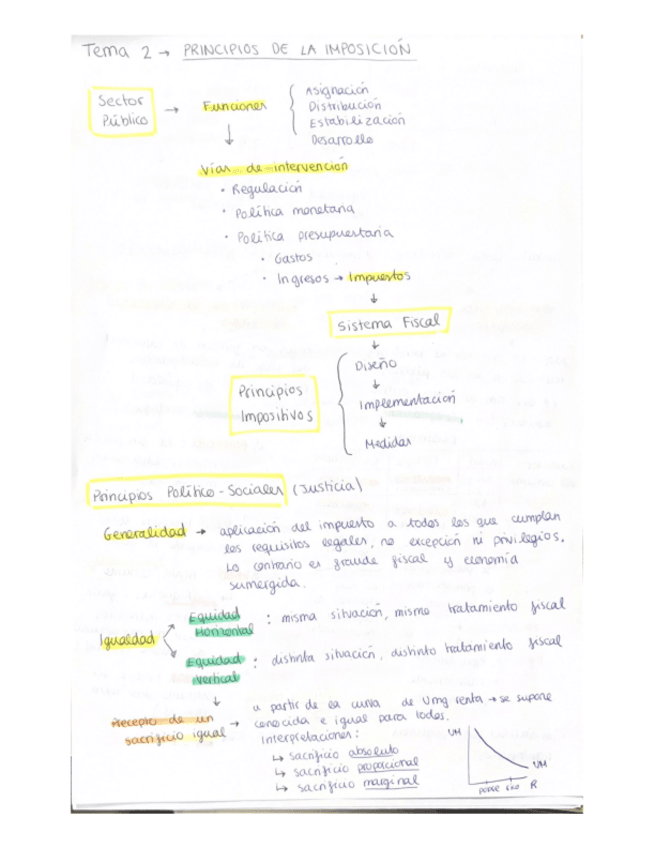 Tema 2 → PRINCIPIOS DE LA IMPOSICIÓN
Sector Público → Funciones
Asignación
Distribución
Estabilización
Desarrollo
↓
Vías de intervención
• Regulación
• Política monetaria
• Política presupuestaria
• Gastos
• Ingresos → Impuestos
↓
Sistema Fiscal
↓
Principios Impositivos
Diseño
↓
Implementación
↓
Medidas
Principios Político-Sociales (Justicia)
Generalidad → aplicación del impuesto a todos los que cumplan
los requisitos legales, no excepción ni privilegios.
Lo contrario es fraude fiscal y economía
sumergida.
Igualdad
Equidad Horizontal : misma situación, mismo tratamiento fiscal
Equidad Vertical : distinta situación, distinto tratamiento fiscal
↓
Precepto de un sacrificio igual →
a partir de la curva de Umg renta → se supone
conocida e igual para todos.
Interpretaciones:
↳ sacrificio absoluto
↳ sacrificio proporcional
↳ sacrificio marginal
UM
UM
pobre rico R